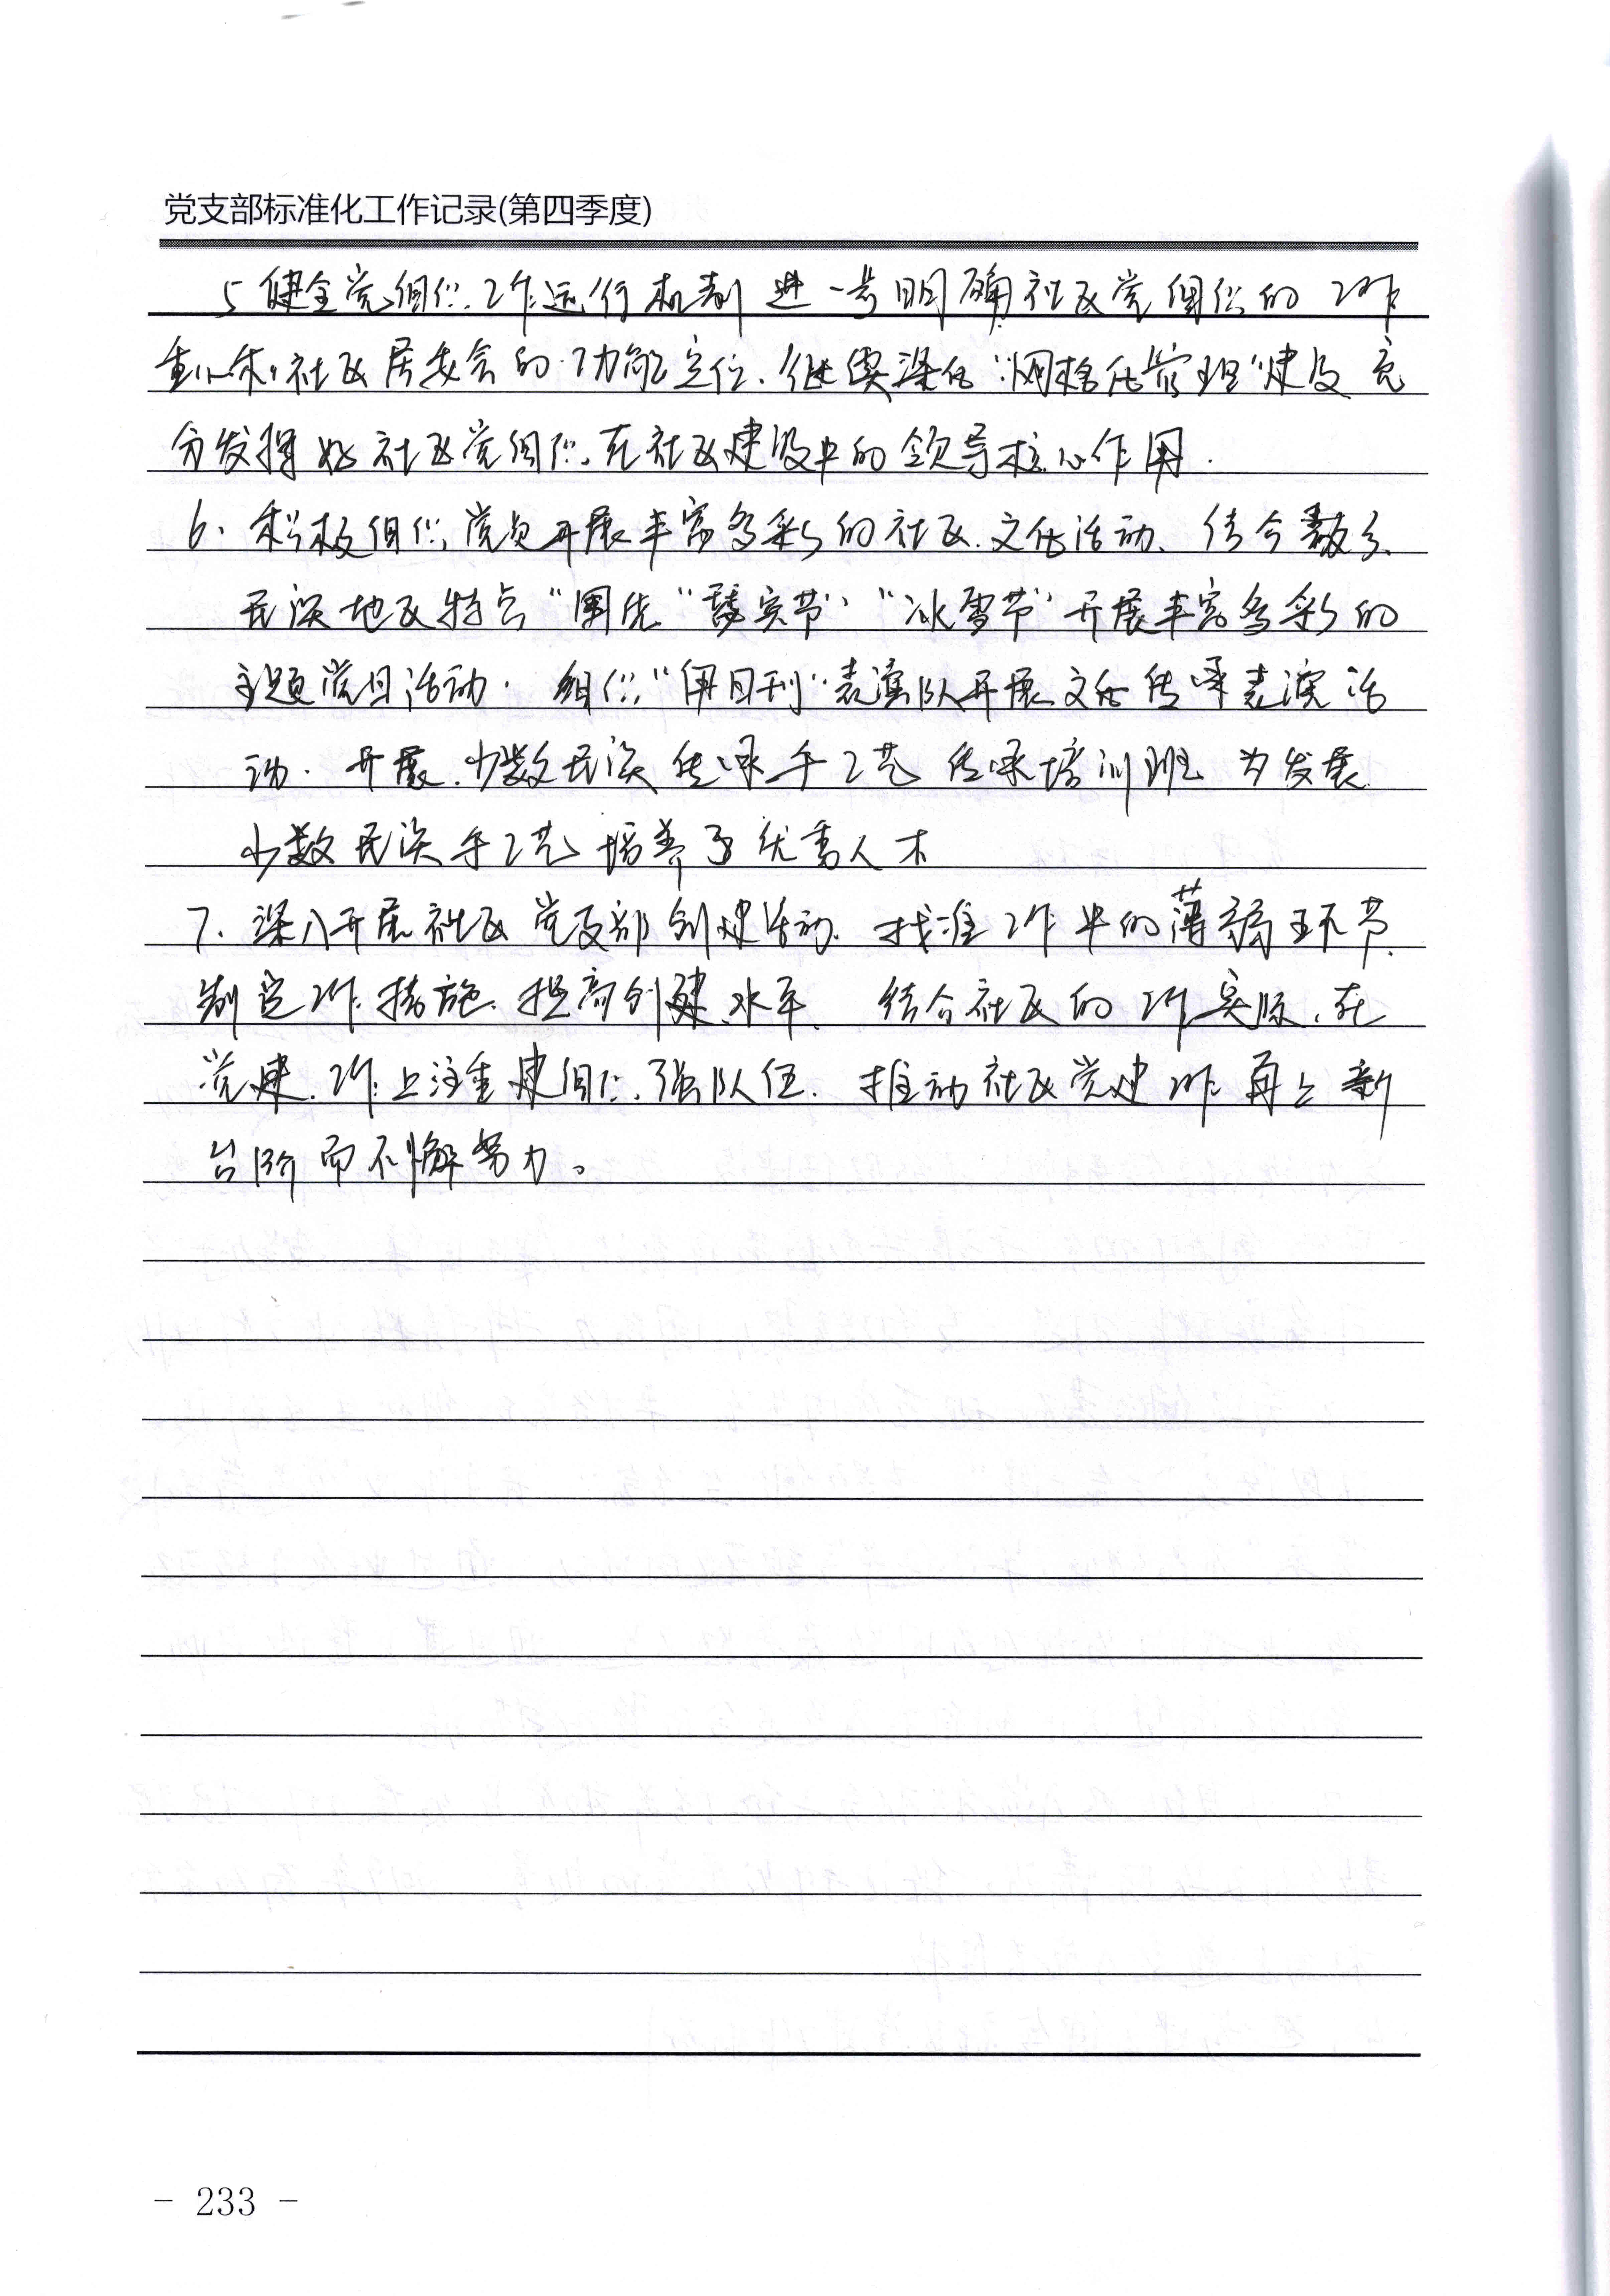 党支部标准化工作记录(第四季度)
5 健全党组织工作运行机制 进一步明确社区党组织的工作
重心和社区居委会的功能定位、继续深化“网格化管理”建设 充
分发挥好社区党组织在社区建设中的领导核心作用.
6. 积极组织党员开展丰富多彩的社区文化活动、结合
民族地区特点“围绕“节”“冰雪节”开展丰富多彩的
主题党日活动. 组织“”表演队开展文化传承表演活
动. 开展少数民族传承手工艺传承培训班 为发展
少数民族手工艺培养了优秀人才
7. 深入开展社区党支部创建活动、找准工作中的薄弱环节、
制定工作措施、提高创建水平、结合社区的工作实际、在
党建工作上注重建组织、强队伍、推动社区党建工作再上新
台阶而不懈努力。
- 233 -